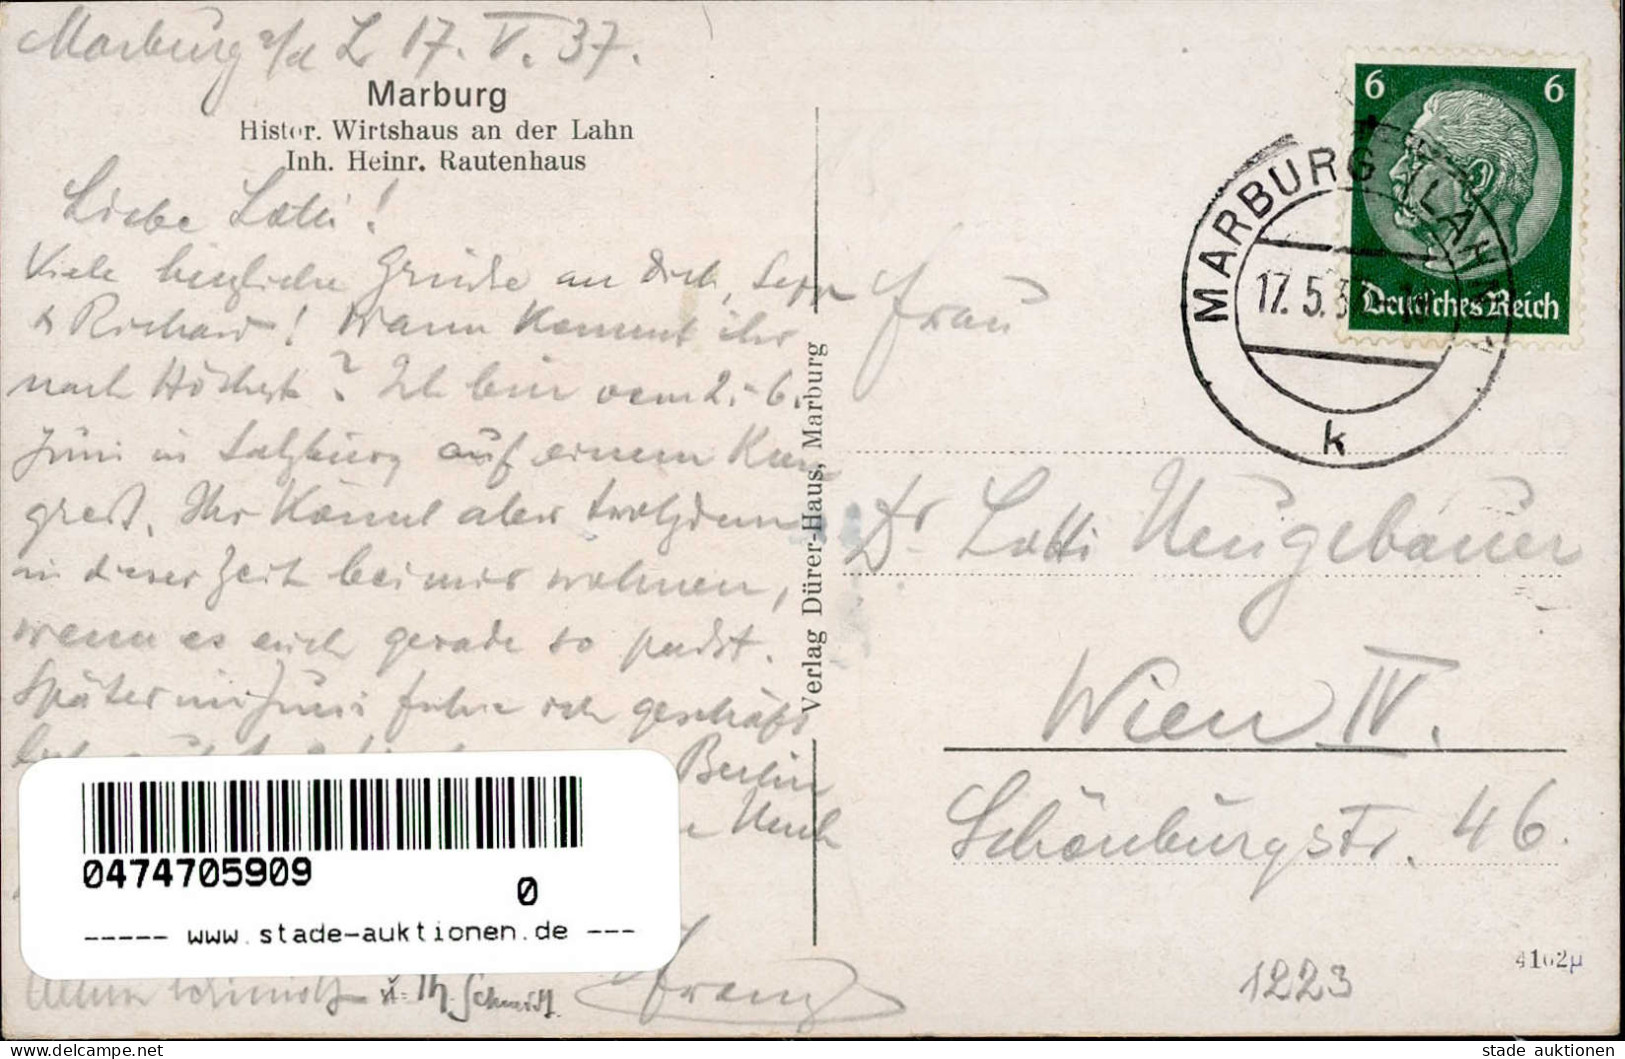 Marburg a/d L 17. V. 37.
Marburg
Histor. Wirtshaus an der Lahn
Inh. Heinr. Rautenhaus
Liebe Lotti!
Viele herzliche Grüsse an Dich, Sepp
& Richard! Wann kommt ihr
nach Höchst? Ich bin vom 2.-6.
Juni in Salzburg auf einem Kon
gress. Ihr könnt aber trotzdem
in dieser Zeit bei mir wohnen,
wenn es euch gerade so passt.
Später im Juni fahre ich geschäft
Berlin
Franz
Th. Schmidt
Verlag Dürer-Haus, Marburg
6 6
Deutsches Reich
MARBURG (LAHN)
17.5.3
k
Frau
Dr Lotti Neugebauer
Wien IV.
Schönburgstr. 46.
1223
4102µ
0474705909
0
----- www.stade-auktionen.de ---
delcampe.net
stade auktionen